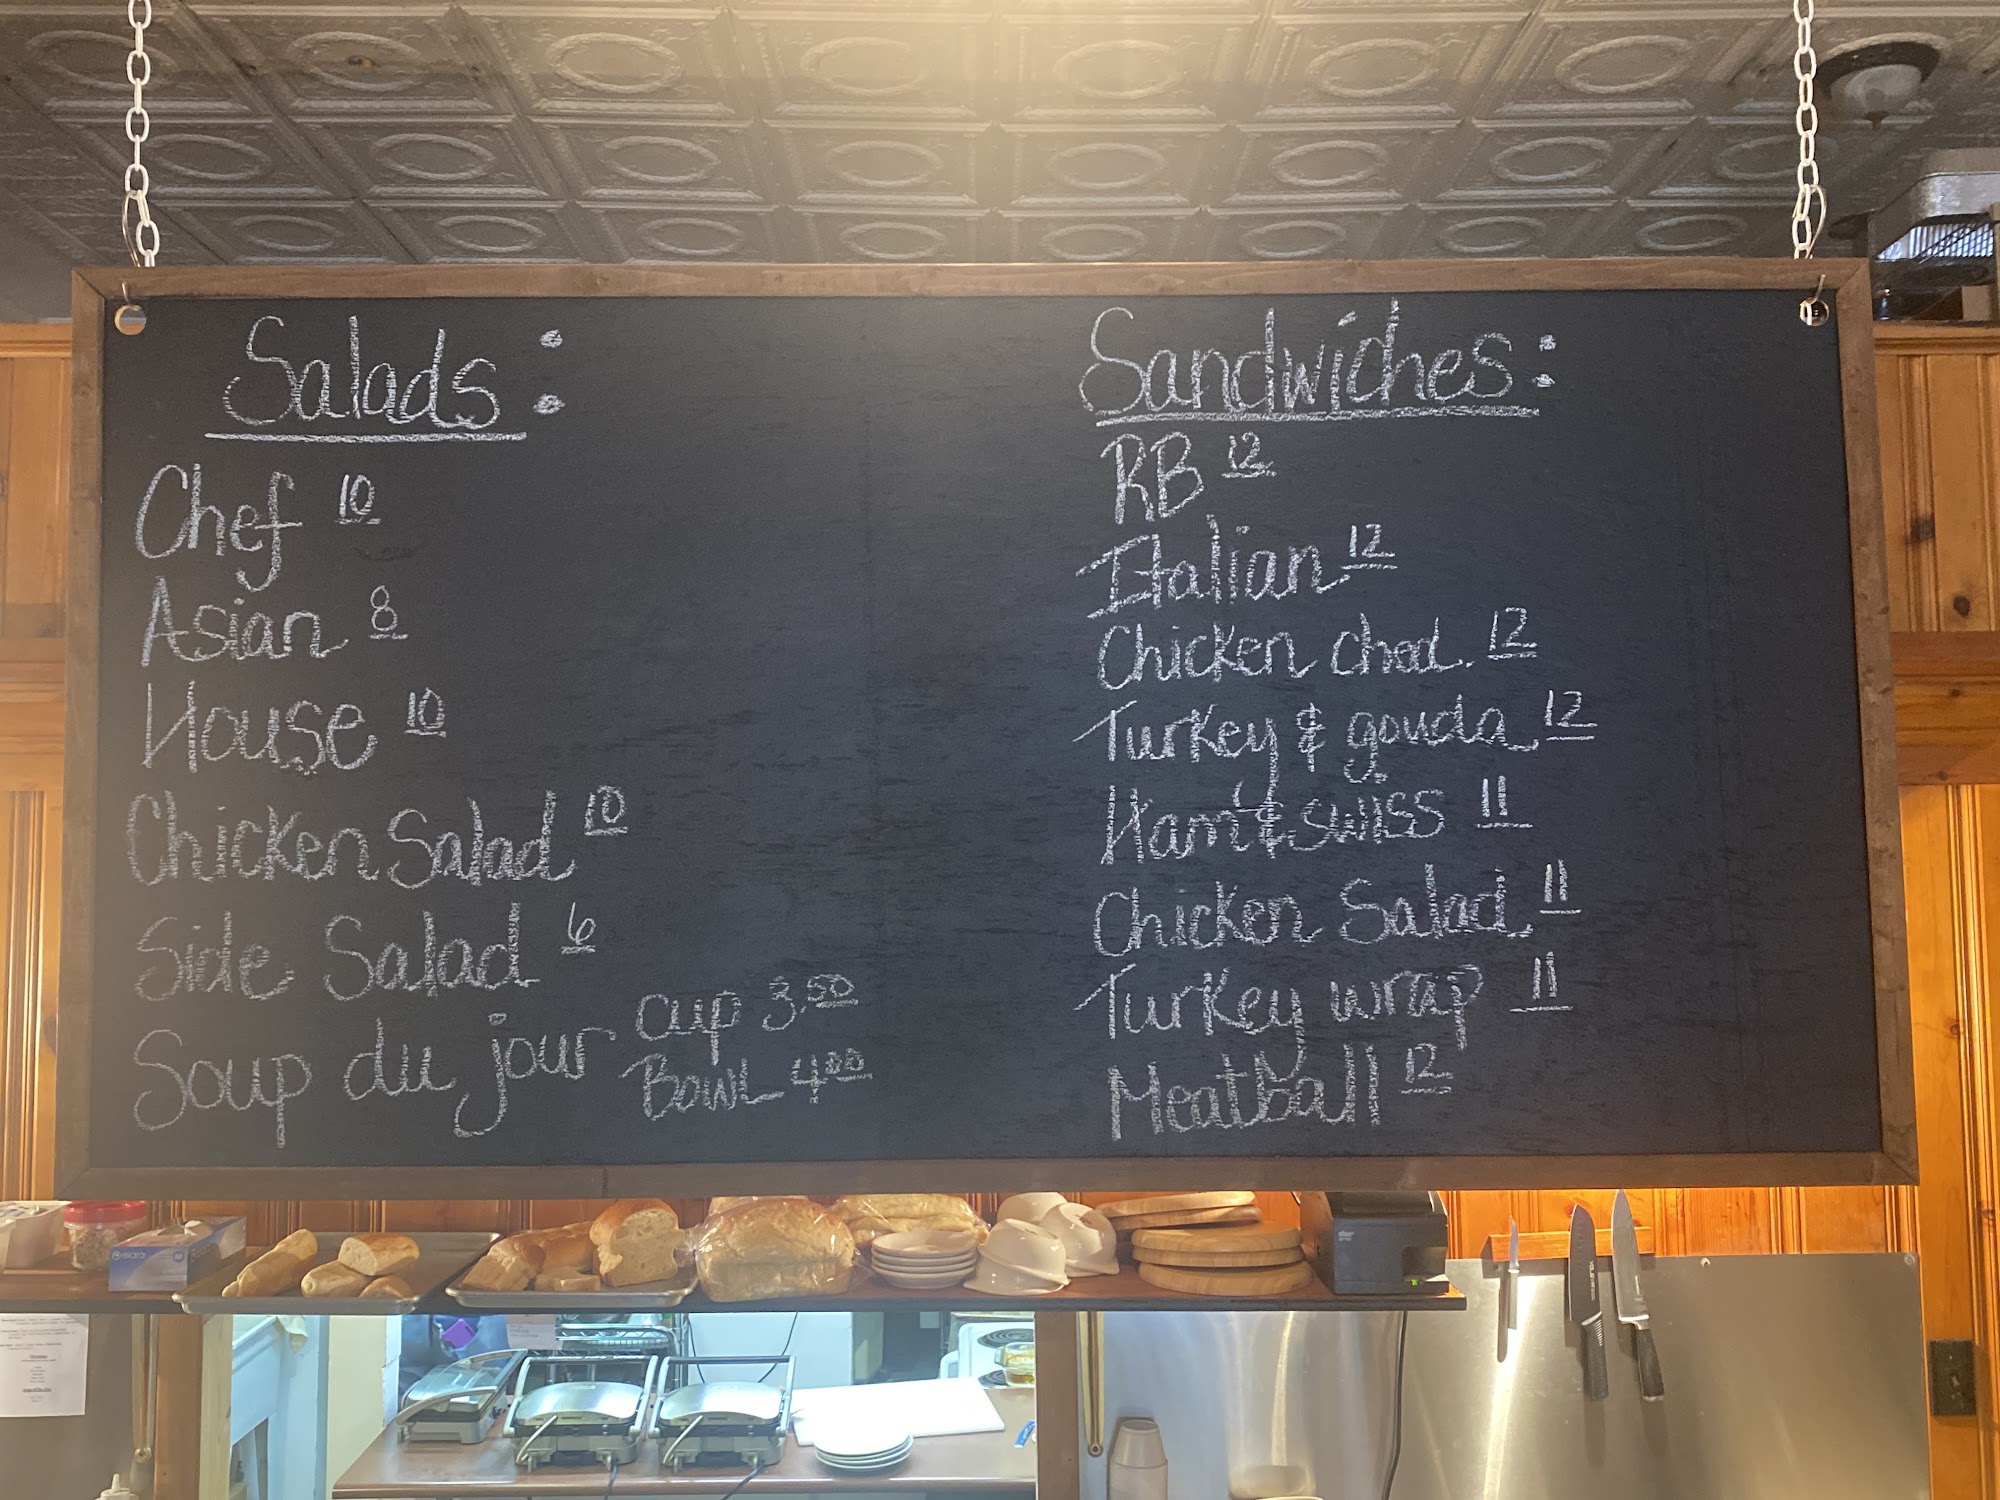 Salads:
Chef 10
Asian 8
House 10
Chicken Salad 10
Side Salad 6
Soup du jour
Cup 3.50
Bowl 4.00
Sandwiches:
RB 12
Italian 12
Chicken ched. 12
Turkey & gouda 12
Ham & swiss 11
Chicken Salad 11
Turkey wrap 11
Meatball 12